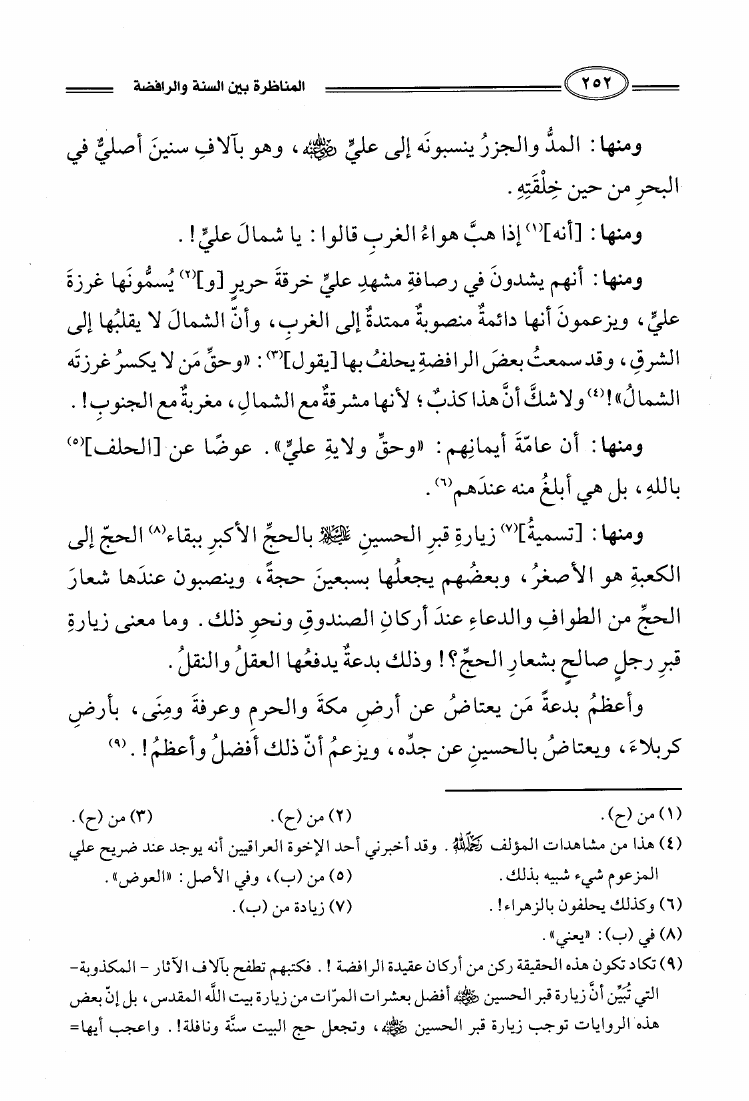 ٢٥٢ المناظرة بين السنة والرافضة
ومنها: المدُّ والجزرُ ينسبونَه إلى عليٍّ رضي الله عنه، وهو بآلافِ سنينَ أصليٌّ في
البحرِ من حين خِلْقَتِهِ.
ومنها: [أنه](١) إذا هبَّ هواءُ الغربِ قالوا: يا شمالَ عليٍّ!.
ومنها: أنهم يشدونَ في رصافةِ مشهدِ عليٍّ خرقةَ حريرٍ [و](٢) يُسمُّونَها غرزةَ
عليٍّ، ويزعمونَ أنها دائمةٌ منصوبةٌ ممتدةٌ إلى الغربِ، وأنّ الشمالَ لا يقلبُها إلى
الشرقِ، وقد سمعتُ بعضَ الرافضةِ يحلفُ بها [يقول](٣): «وحقِّ مَن لا يكسرُ غرزتَه
الشمالُ»!(٤) ولا شكَّ أنَّ هذا كذبٌ؛ لأنها مشرقةٌ مع الشمالِ، مغربةٌ مع الجنوبِ!.
ومنها: أن عامّةَ أيمانِهم: «وحقِّ ولايةِ عليٍّ». عوضًا عن [الحلف](٥)
باللهِ، بل هي أبلغُ منه عندَهم(٦).
ومنها: [تسميةُ](٧) زيارةِ قبرِ الحسينِ عليه السلام بالحجِّ الأكبرِ ببقاء(٨) الحجّ إلى
الكعبةِ هو الأصغرُ، وبعضُهم يجعلُها بسبعينَ حجةً، وينصبون عندَها شعارَ
الحجِّ من الطوافِ والدعاءِ عندَ أركانِ الصندوقِ ونحوِ ذلك. وما معنى زيارةِ
قبرِ رجلٍ صالحٍ بشعارِ الحجِّ؟! وذلك بدعةٌ يدفعُها العقلُ والنقلُ.
وأعظمُ بدعةً مَن يعتاضُ عن أرضِ مكةَ والحرمِ وعرفةَ ومِنَى، بأرضِ
كربلاءَ، ويعتاضُ بالحسينِ عن جدِّه، ويزعمُ أنّ ذلك أفضلُ وأعظمُ!.(٩)
(١) من (ح). (٢) من (ح). (٣) من (ح).
(٤) هذا من مشاهدات المؤلف رحمه الله. وقد أخبرني أحد الإخوة العراقيين أنه يوجد عند ضريح علي
المزعوم شيء شبيه بذلك. (٥) من (ب)، وفي الأصل: «العوض».
(٦) وكذلك يحلفون بالزهراء!. (٧) زيادة من (ب).
(٨) في (ب): «يعني».
(٩) تكاد تكون هذه الحقيقة ركن من أركان عقيدة الرافضة!. فكتبهم تطفح بآلاف الآثار - المكذوبة-
التي تُبيِّن أنَّ زيارة قبر الحسين رضي الله عنه أفضل بعشرات المرّات من زيارة بيت الله المقدس، بل إنّ بعض
هذه الروايات توجب زيارة قبر الحسين رضي الله عنه، وتجعل حج البيت سنَّة ونافلة!. واعجب أيها=